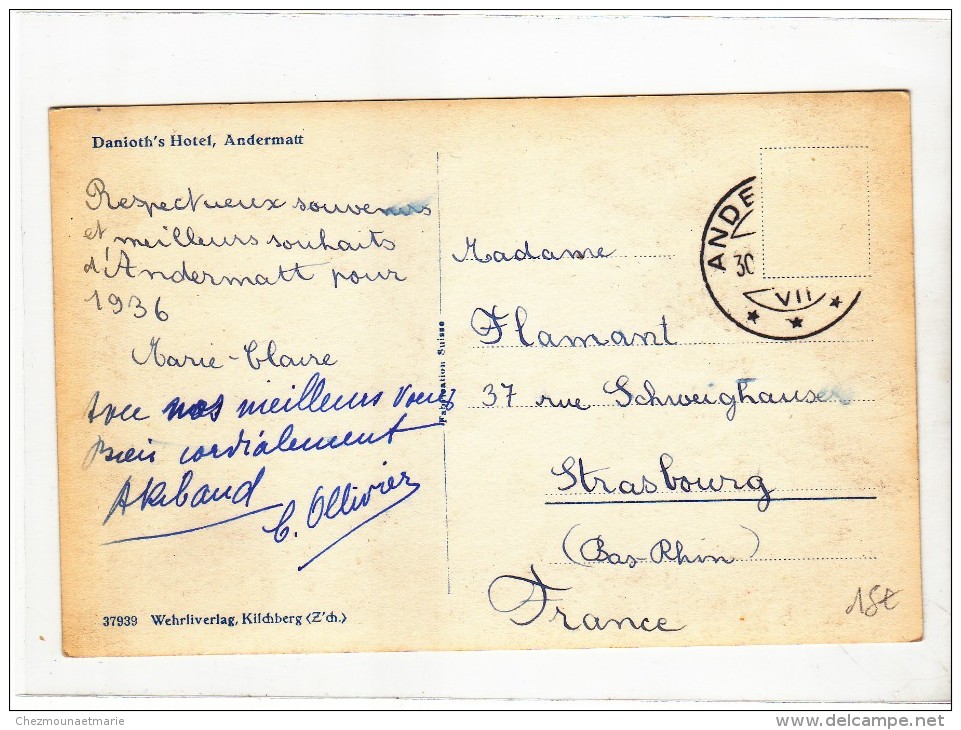 Danioth's Hotel, Andermatt
Respectueux souvenirs
et meilleurs souhaits
d'Andermatt pour
1936
Marie-Claire
Avec nos meilleurs voeux
Bien cordialement
C. Ollivier
37939 Wehrliverlag, Kilchberg (Z'ch.)
Fabrication Suisse
ANDE
30
VII
Madame
Flamant
37 rue Schweighauser
Strasbourg
(Bas-Rhin)
France
15€
Chezmounaetmarie
delcampe.net